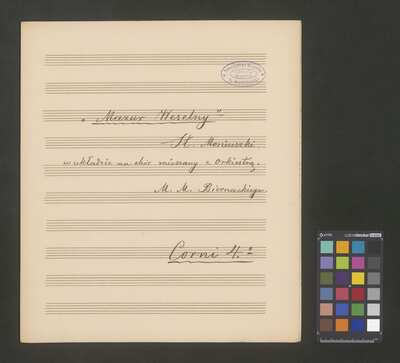 „Mazur Weselny"
St. Moniuszki.
w układzie na chór mieszany z orkiestrą.
M. M. Biernackiego.
Corni 4.º